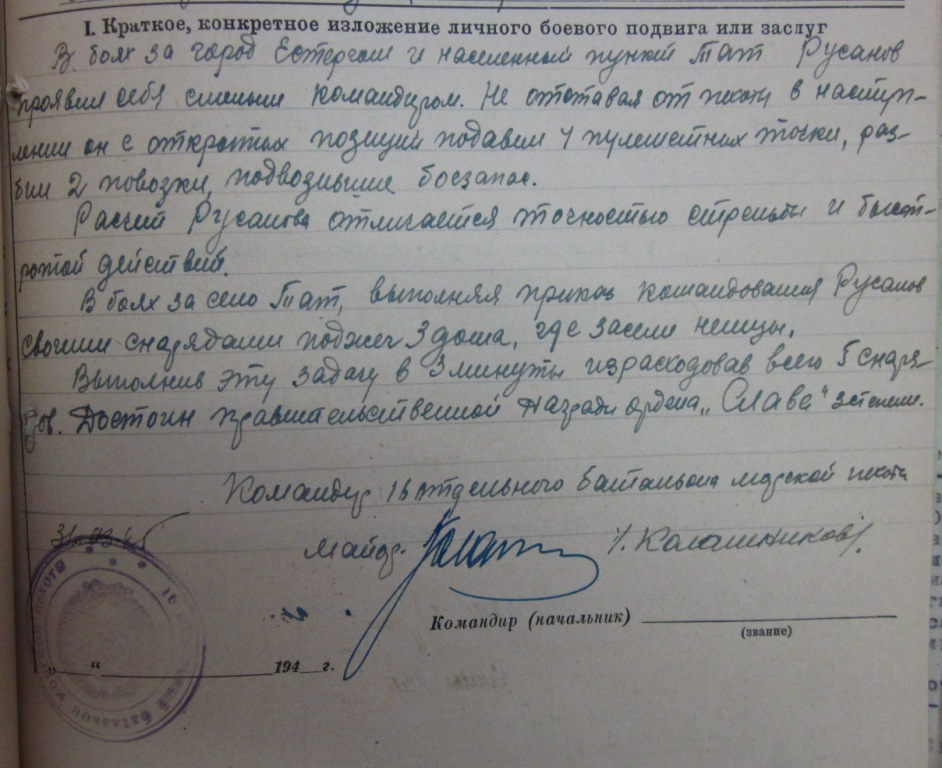 I. Краткое, конкретное изложение личного боевого подвига или заслуг
В боях за город Естергом и населенный пункт Тат Русанов
проявил себя смелым командиром. Не отставая от пехоты в наступ-
лении он с открытых позиций подавил 4 пулеметных точки, раз-
бил 2 повозки, подвозившие боезапас.
Расчет Русанова отличается точностью стрельбы и быст-
ротой действий.
В боях за село Тат, выполняя приказ командования Русанов
своими снарядами поджег 3 дома, где засели немцы.
Выполнив эту задачу в 3 минуты израсходовав всего 5 снаря-
дов. Достоин правительственной награды ордена „Слава" 3 степени.
Командир 16 отдельного батальона морской пехоты
31.03.45
майор /. Калашников/.
Командир (начальник)
(звание)
„ “ 194 г.